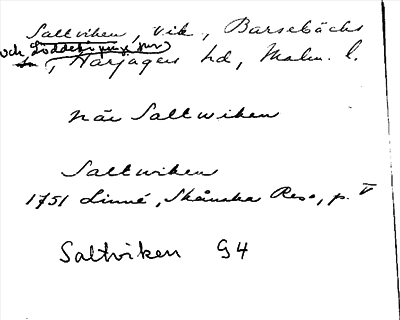 Saltviken, vik, Barsebäcks
och Löddeköpinge snr
sn, Harjagers hd, Malm. l.
när Saltwiken
Saltwiken
1751 Linné, Skånska Resa, p. V
Saltviken G4